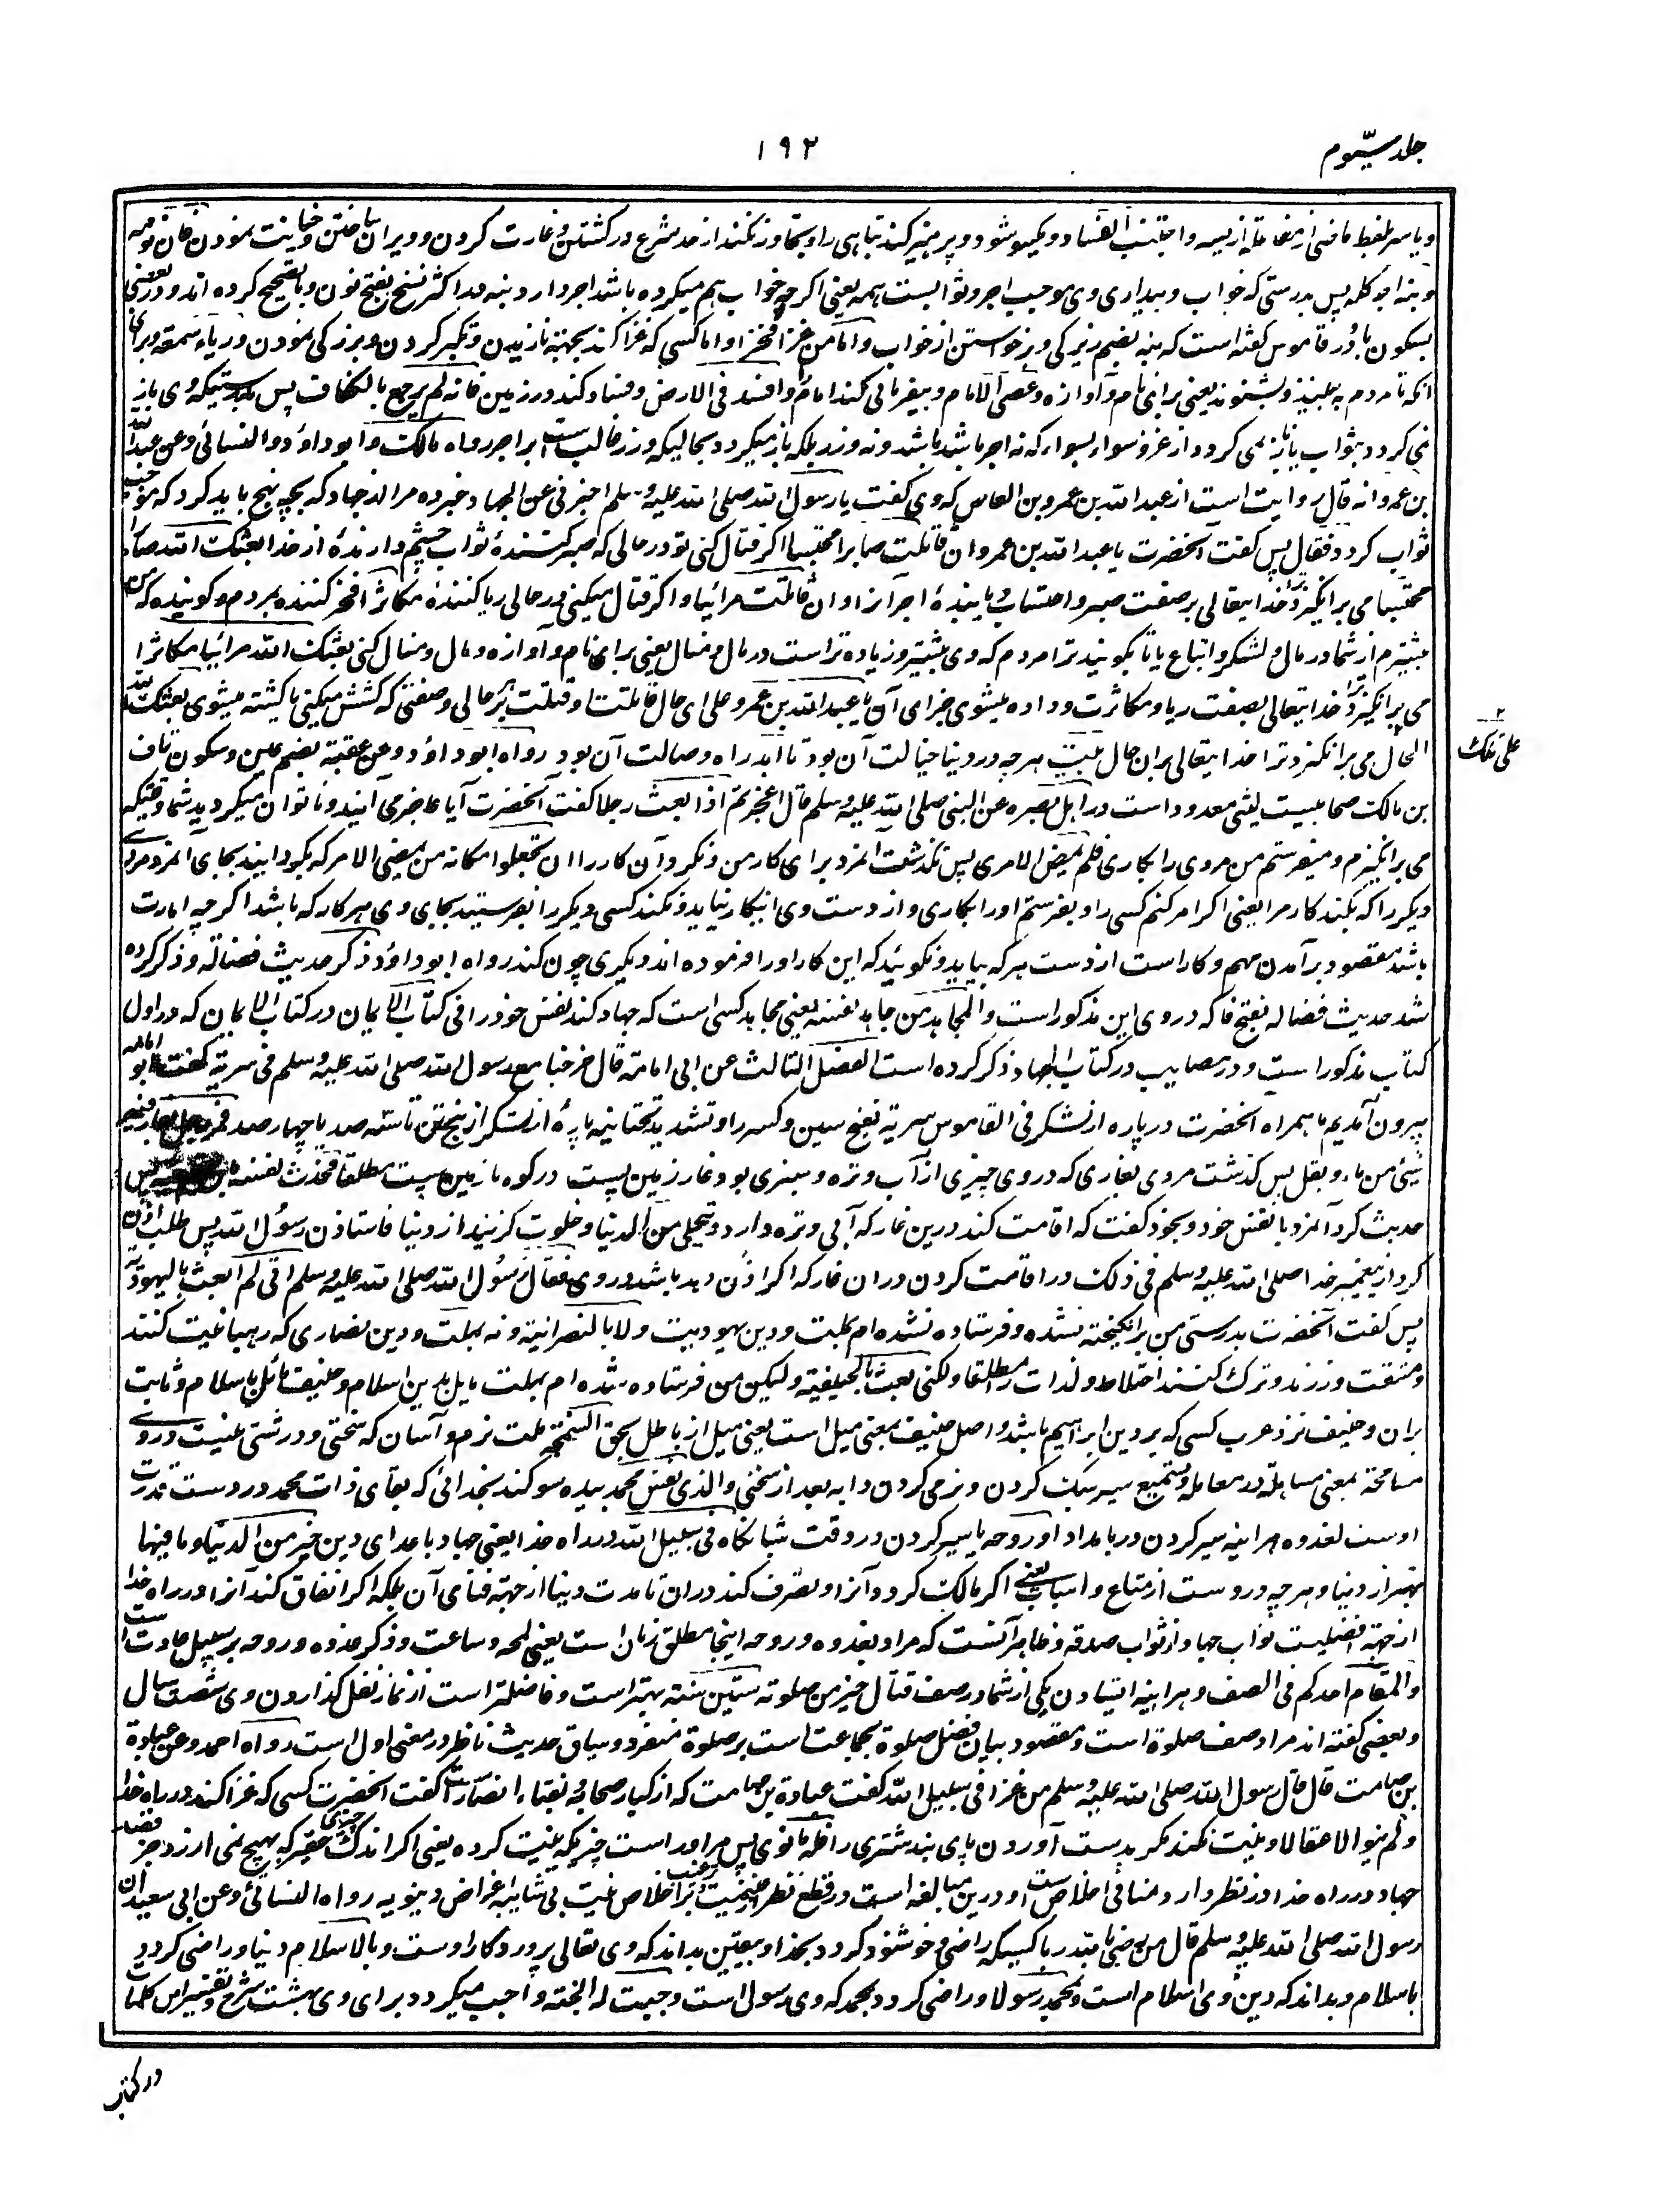 جلد سیّوم
۱۹۲
ویاسر بلفظ ماضی از مفاعله از یسر واجتنب الفساد و یکسو شود و پرهیز کند تباهی را و تجاوز نکند از حد شرع در کشتن و غارت کردن و ویران ساختن و خیانت نمودن فان نومه
و نبهه اجر کله پس بدرستی که خواب و بیداری وی موجب اجر و ثوابست همه یعنی اگرچه خواب هم میکرده باشد اجر دارد و نبه در اکثر نسخ بفتح نون و با تصحیح کرده اند و در بعضی
بسکون با و در قاموس گفته است که نبه بضم زیرکی و برخواستن از خواب واما من غزا فخرا و اما کسی که غزا کند بجهة نازیدن و تکبر کردن و بزرگی نمودن وریاء وسمعة و برای
آنکه تا مردم به بینند و بشنوند یعنی برای نام و آوازه وعصی الامام و بیفرمانی کند امام را وافسد فی الارض و فساد کند در زمین فانه لم یرجع بالکفاف پس بدرستیکه وی باز
نمی گردد بثواب یا باز نمی گردد از غزو سواء بسواء که نه اجر باشد باشد و نه وزر بلکه باز میگردد بحالیکه وزر غالب است بر اجر رواه مالک و ابو داؤد و النسائی وعن عبد الله
بن عمرو انه قال روایت است از عبد الله بن عمرو بن العاص که وی گفت یا رسول الله صلی الله علیه وسلم اخبرنی عن الجهاد خبر ده مرا از جهاد که بچه نهج باید کرد که موجب
ثواب گردد فقال پس گفت آنحضرت یا عبد الله بن عمرو ان قاتلت صابرا محتسبا اگر قتال کنی تو در حالی که صبر کننده ثواب چشم دارنده از خدا بعثک الله صابرا
محتسبا می برانگیزد ترا خدایتعالی بر صفت صبر و احتساب و یابنده اجر آنرا وان قاتلت مرائیا و اگر قتال میکنی در حالی ریا کننده مکاثرا فخر کننده بمردم و گوینده که من
بیشترم از شما در مال و لشکر و اتباع یا تا بگویند ترا مردم که وی بیشتر و زیاده تر است در مال و منال یعنی برای نام و آوازه و مال و منال کنی بعثک الله مرائیا مکاثرا
می برانگیزد ترا خدایتعالی بصفت ریا و مکاثرت و داده میشوی جزای آن یا عبد الله بن عمرو علی ای حال قاتلت او قتلت بر هر حالی و صفتی که کشش میکنی یا کشته میشوی بعثک الله
علی تلک
الحال می برانگیزد ترا خدایتعالی بران حال بیت هرچه در دنیا خیالت آن بود تا ابد راه وصالت آن بود رواه ابو داؤد وعن عقبة بضم عین و سکون قاف
بن مالک صحابیست لیثی معدود است در اهل بصره عن النبی صلی الله علیه وسلم قال اعجزتم اذا بعثت رجلا گفت آنحضرت آیا عاجز می آئید و ناتوان میگردید شما وقتیکه
می برانگیزم و میفرستم من مردی را بکاری فلم یمض لامری پس نگذشت آنمرد برای کار من و نکرد آن کار را ان تجعلوا مکانه من یمضی لامر که بگردانید بجای آنمرد مردی
دیگر را که بکند کار مرا یعنی اگر امر کنم کسی را و بفرستم او را بکاری و از دست وی اینکار نیاید و نکند کسی دیگر را بفرستید بجای وی هر کار که باشد اگرچه امارت
باشد مقصود برآمدن مهم و کار است از دست هر که بیاید و نگوئید که این کار او را فرموده اند دیگری چون کند رواه ابو داؤد وذکر حدیث فضالة و ذکر کرده
شد حدیث فضاله بفتح فا که در وی این مذکور است والمجاهد من جاهد نفسه یعنی مجاهد کسی است که جهاد کند نفس خود را فی کتاب الایمان در کتاب الایمان که در اول
کتاب مذکور است و در مصابیح در کتاب الجهاد ذکر کرده است الفصل الثالث عن ابی امامة قال خرجنا مع رسول الله صلی الله علیه وسلم فی سریة گفت ابو امامه
بیرون آمدیم ما همراه آنحضرت در پاره از لشکر فی القاموس سریة بفتح سین و کسر را و تشدید تحتانیه پاره از لشکر از پنج تن تا سه صد یا چهار صد فمر رجل بغار فیه
شیٔ من ماء وبقل پس گذشت مردی بغاری که در وی چیزی از آب و تره و سبزی بود و غار زمین پست در کوه یا زمین پست مطلقا فحدث نفسه پس
حدیث کرد آنمرد با نفس خود و بخود گفت که اقامت کند درین غار که آبی و تره دارد و یتخلی من الدنیا و خلوت گزیند از دنیا فاستاذن رسول الله پس طلب اذن
کرد از پیغمبر خدا صلی الله علیه وسلم فی ذلک در اقامت کردن در ان غار که اگر اذن دهد باشد در وی فقال رسول الله صلی الله علیه وسلم انی لم ابعث بالیهودیة
پس گفت آنحضرت بدرستی من برانگیخته نشده و فرستاده نشده ام بملت و دین یهودیت ولا بالنصرانیة و نه بملت و دین نصاری که رهبانیت کنند
و مشقت ورزند و ترک کنند اختلاط و لذات را مطلقا ولکنی بعثت بالحنیفیة ولیکن من فرستاده شده ام بملت مایل بدین اسلام و حنیف مائل باسلام و ثابت
بران و حنیف نزد عرب کسی که بر دین ابراهیم باشد و اصل حنیف بمعنی میل است یعنی میل از باطل بحق السمحة ملت نرم و آسان که سختی و درشتی نیست در وی
مسامحة بمعنی مساهلة در معاملة و تسمیح سیر سبک کردن و نرمی کردن دابه بعد از سختی والذی نفس محمد بیده سوگند بخدائی که بقای ذات محمد در دست قدرت
اوست لغدوة هر اینه سیر کردن در بامداد او روحة یا سیر کردن در وقت شبانگاه فی سبیل الله در راه خدا یعنی جهاد با عدای دین خیر من الدنیا وما فیها
بهتر از دنیا و هرچه در وست از متاع و اسباب یعنی اگر مالک گردد آنرا و تصرف کند در ان تا مدت دنیا از جهة فنای آن بلکه اگر انفاق کند آنرا در راه خدا
از جهة افضلیت ثواب جهاد از ثواب صدقه و ظاهر آنست که مراد بغدوه و روحه اینجا مطلق زمان است یعنی لمحه و ساعت و ذکر غدوه و روحه بر سبیل عادت است
والمقام احدکم فی الصف و هر اینه ایستادن یکی از شما در صف قتال خیر من صلوته ستین سنة بهتر است و فاضلتر است از نماز نفل گذاردن وی شصت سال
و بعضی گفته اند مراد صف صلوة است و مقصود بیان فضل صلوة بجماعت است بر صلوة منفرد و سیاق حدیث ناظر در معنی اول است رواه احمد وعن عبادة
بن صامت قال قال رسول الله صلی الله علیه وسلم من غزا فی سبیل الله گفت عبادة بن صامت که از کبار صحابه و نقباء انصار است گفت آنحضرت کسی که غزا کند در راه خدا
ولم ینو الا عقالا و نیت نکند مگر بدست آوردن پای بند شتری را فله ما نوی پس مر او راست چیزیکه نیت کرده یعنی اگر اندک چیزی حقیر که بهیچ نمی ارزد جز قصد
جهاد در راه خدا در نظر دارد منافی اخلاص است و درین مبالغه است در قطع نظر از غنیمت و ترغیب بر اخلاص نیت بی شایبه اغراض دنیویه رواه النسائی وعن ابی سعید ان
رسول الله صلی الله علیه وسلم قال من رضی بالله ربا کسیکه راضی و خوشنود گردد بخدا و بیقین بداند که وی تعالی پروردگار اوست وبالاسلام دینا و راضی گردد
باسلام و بداند که دین وی اسلام است وبمحمد رسولا و راضی گردد بمحمد که وی رسول است وجبت له الجنة واجب میگردد برای وی بهشت شرح و تفسیر این کلمات
در کتاب